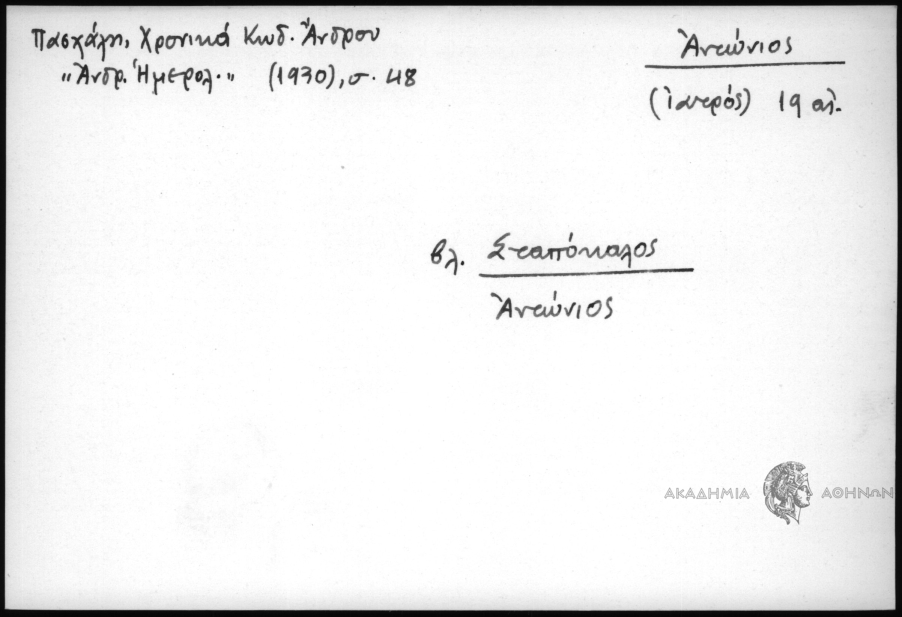 Πασχάλη, Χρονικά Κωδ. Ἄνδρου
„Ἀνδρ. Ἡμερολ." (1930), σ. 48
Ἀντώνιος
(ἰατρός) 19 αἰ.
βλ. Στραπόκαλος
Ἀντώνιος
ΑΚΑΔΗΜΙΑ ΑΘΗΝΩΝ